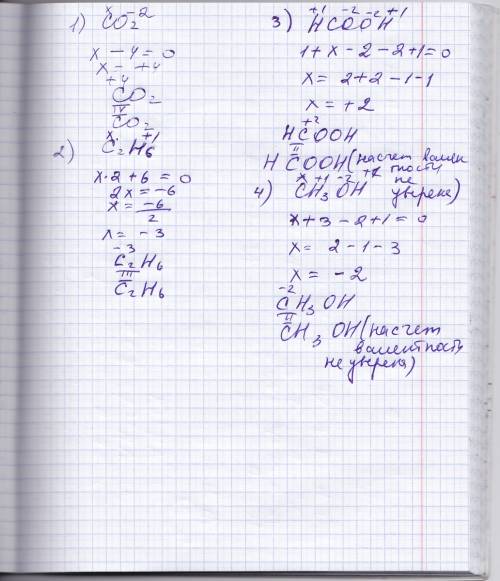 1) x -2
CO2
x - 4 = 0
x = +4
+4
CO2
IV
CO2
2) x +1
C2H6
x·2 + 6 = 0
2x = -6
x = -6/2
x = -3
-3
C2H6
III
C2H6
3) +1 -2 -2 +1
HCOOH
1 + x - 2 - 2 + 1 = 0
x = 2 + 2 - 1 - 1
x = +2
+2
HCOOH
II
HCOOH (насчет вален
тности
не
уверена)
4) x +1 -2 +1
CH3OH
x + 3 - 2 + 1 = 0
x = 2 - 1 - 3
x = -2
-2
CH3OH
II
CH3OH (насчет
валентности
не уверена)